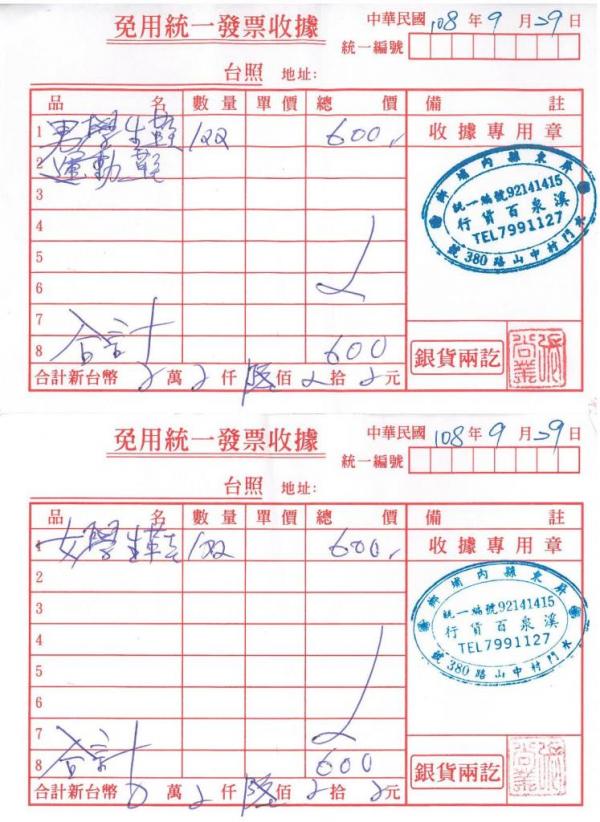 免用統一發票收據
中華民國 108 年 9 月 29 日
統一編號
台照 地址:
品 名 數量 單價 總 價 備 註
1 男學生鞋 1双 600 收據專用章
2 運動鞋
3
4
5
6
7
8 合計 600
屏東縣內埔鄉
統一編號92141415
溪泉百貨行
TEL7991127
水門村中山路380號
銀貨兩訖
合計新台幣 萬 仟 陸佰 拾 元
免用統一發票收據
中華民國 108 年 9 月 29 日
統一編號
台照 地址:
品 名 數量 單價 總 價 備 註
女學生鞋 1双 600 收據專用章
2
3
4
5
6
7
8 合計 600
屏東縣內埔鄉
統一編號92141415
溪泉百貨行
TEL7991127
水門村中山路380號
銀貨兩訖
合計新台幣 0 萬 仟 陸佰 拾 元